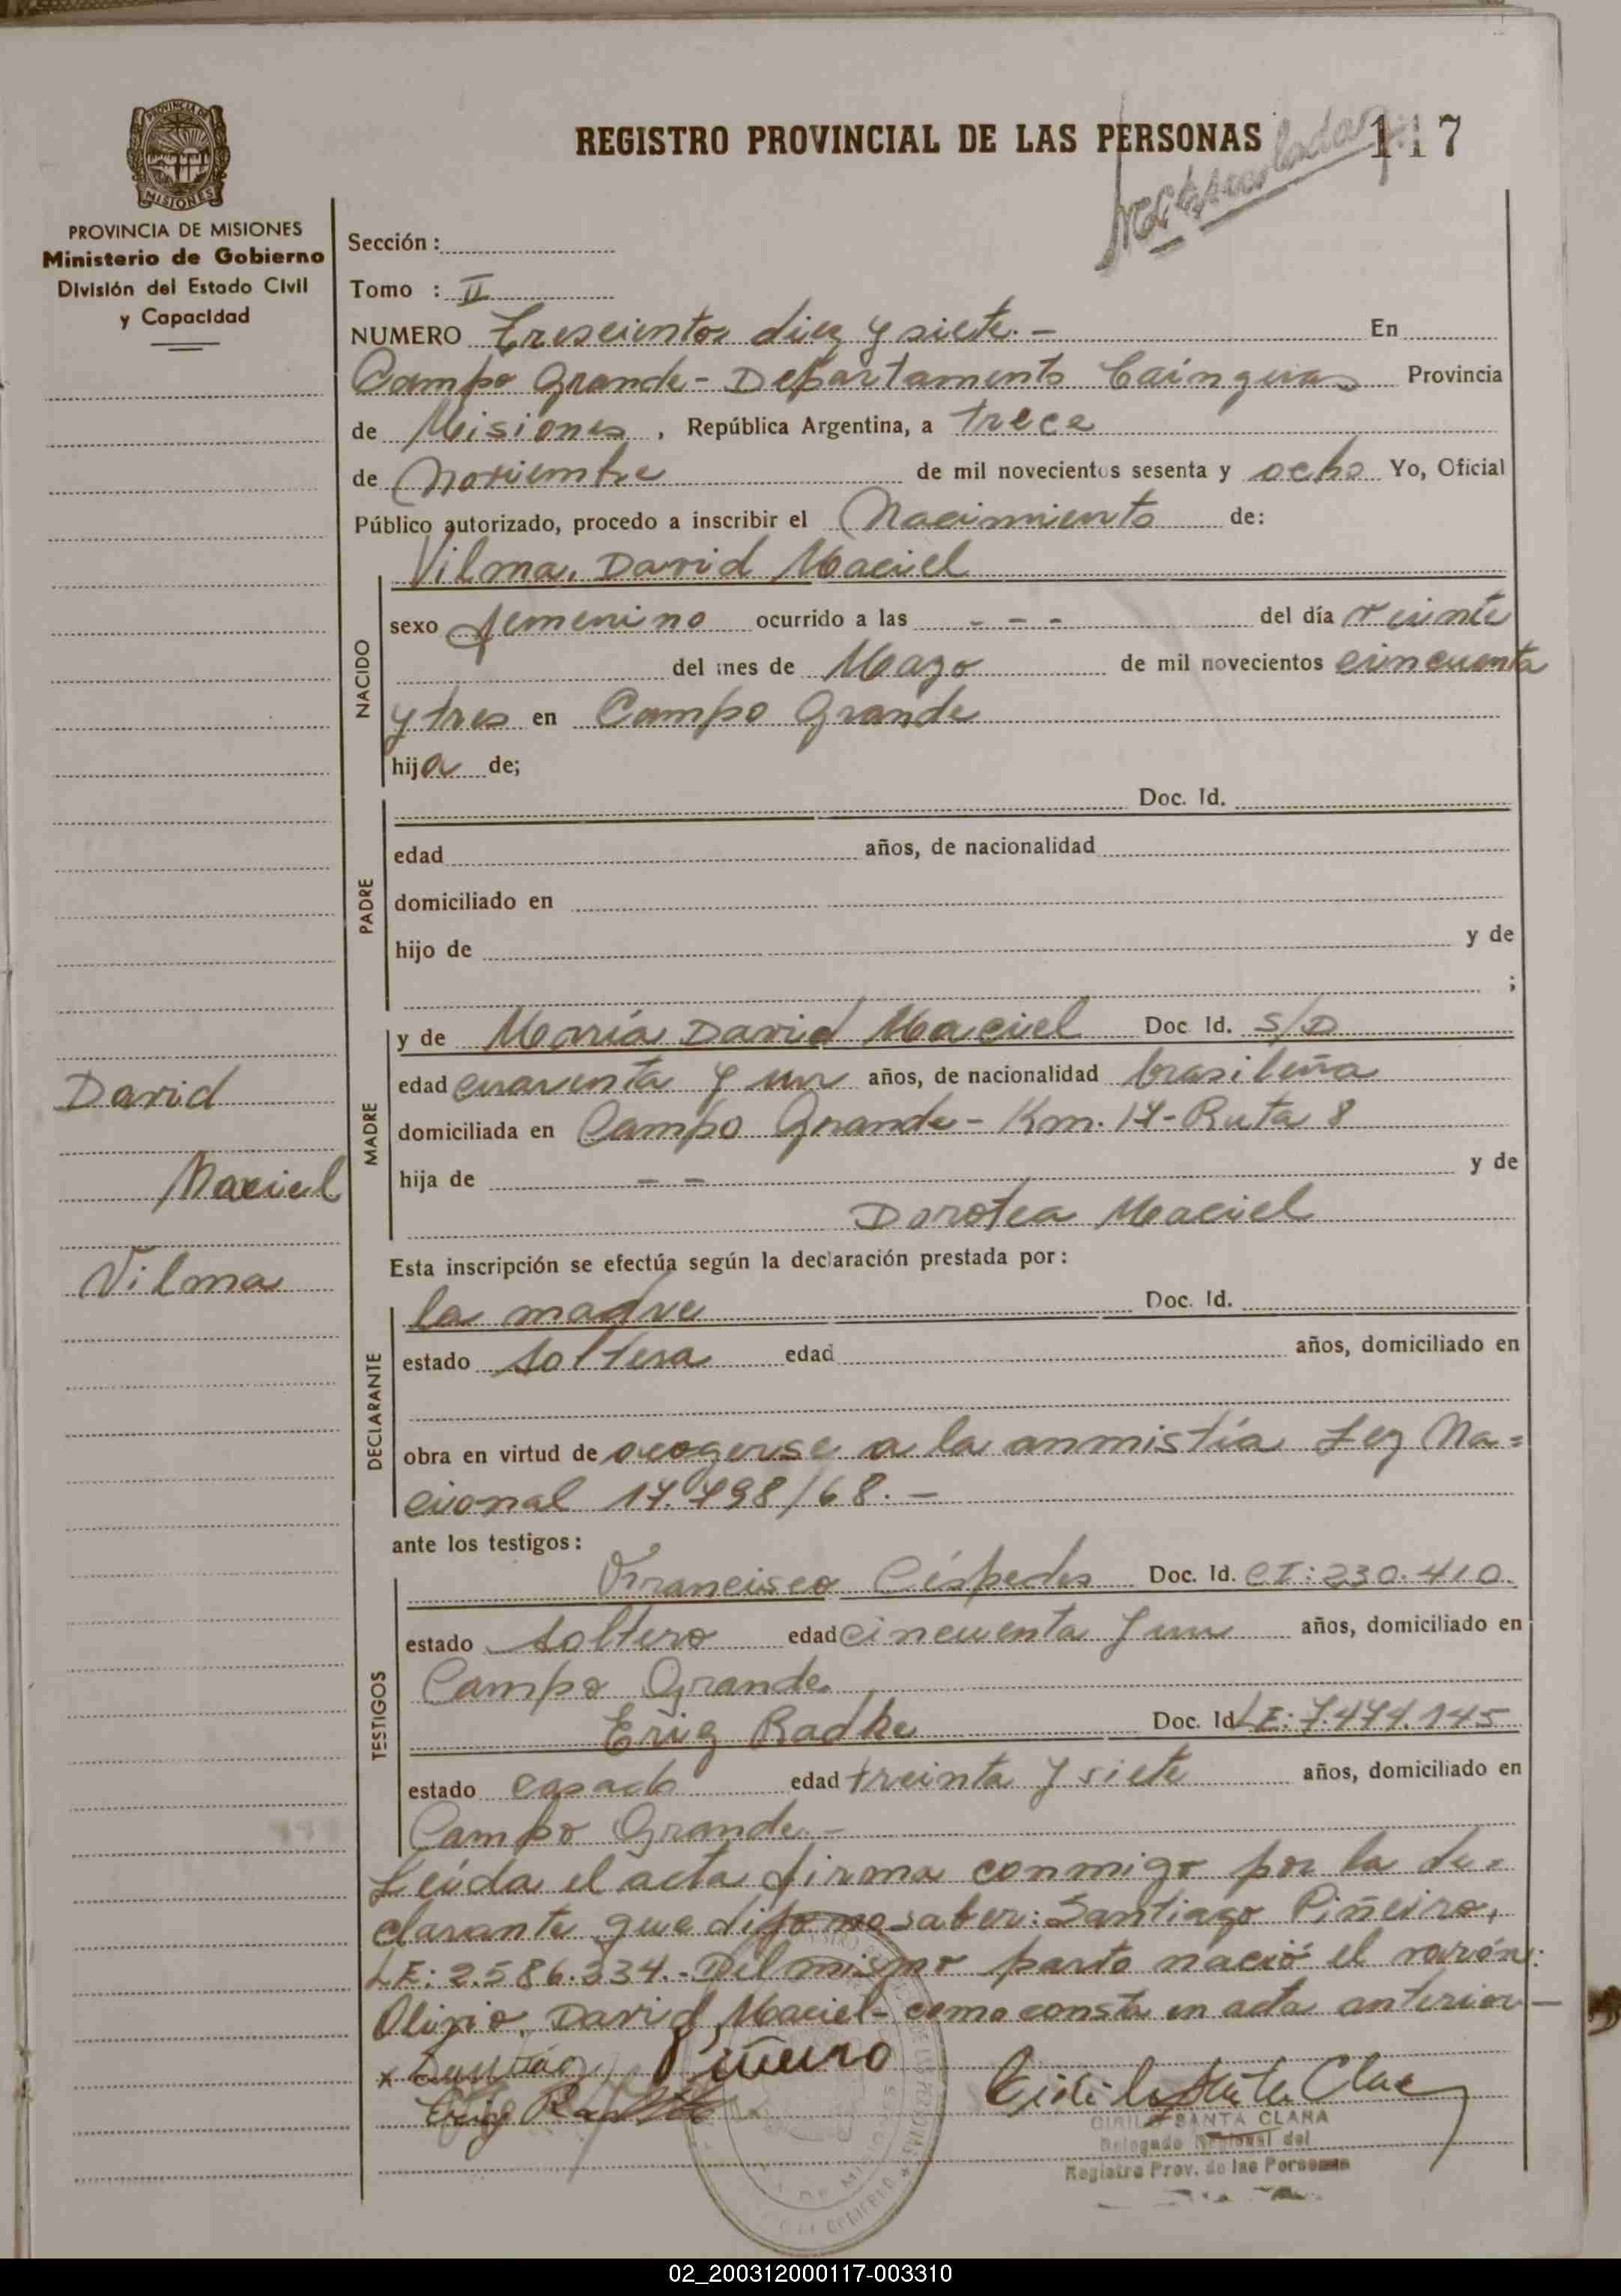 REGISTRO PROVINCIAL DE LAS PERSONAS
117
PROVINCIA DE MISIONES
Ministerio de Gobierno
División del Estado Civil
y Capacidad
Sección :
Tomo : II
NUMERO Trescientos diez y siete.- En
Campo Grande - Departamento Cainguas Provincia
de Misiones , República Argentina, a trece
de Noviembre de mil novecientos sesenta y ocho Yo, Oficial
Público autorizado, procedo a inscribir el Nacimiento de:
Vilma, David Maciel
NACIDO
sexo femenino ocurrido a las - - - del día veinte
del mes de Mazo de mil novecientos cincuenta
y tres en Campo Grande
hija de;
PADRE
Doc. Id.
edad años, de nacionalidad
domiciliado en
hijo de y de
;
MADRE
y de María David Maciel Doc Id. S/D
edad cuarenta y un años, de nacionalidad brasileña
domiciliada en Campo Grande - Km. 17 - Ruta 8
hija de - - y de
Dorotea Maciel
David
Maciel
Vilma
Esta inscripción se efectúa según la declaración prestada por :
DECLARANTE
la madre Doc. Id.
estado soltera edad años, domiciliado en
obra en virtud de acogerse a la anmistía Ley Na=
cional 17.798/68.-
ante los testigos :
TESTIGOS
Francisco Céspedes Doc. Id. CI: 230.410.
estado soltero edad cincuenta y un años, domiciliado en
Campo Grande.
Eriz Radke Doc. Id LE: 7.474.145
estado casado edad treinta y siete años, domiciliado en
Campo Grande.-
Leída el acta firma conmigo por la de=
clarante que dijo no saber: Santiago Piñeiro,
LE: 2.586.334.- Del mismo parto nació el varón:
Olirio, David Maciel - como consta en acta anterior -
x Santiago Piñeiro
CIRILO SANTA CLARA
Delegado Regional del
Registro Prov. de las Personas
02_200312000117-003310